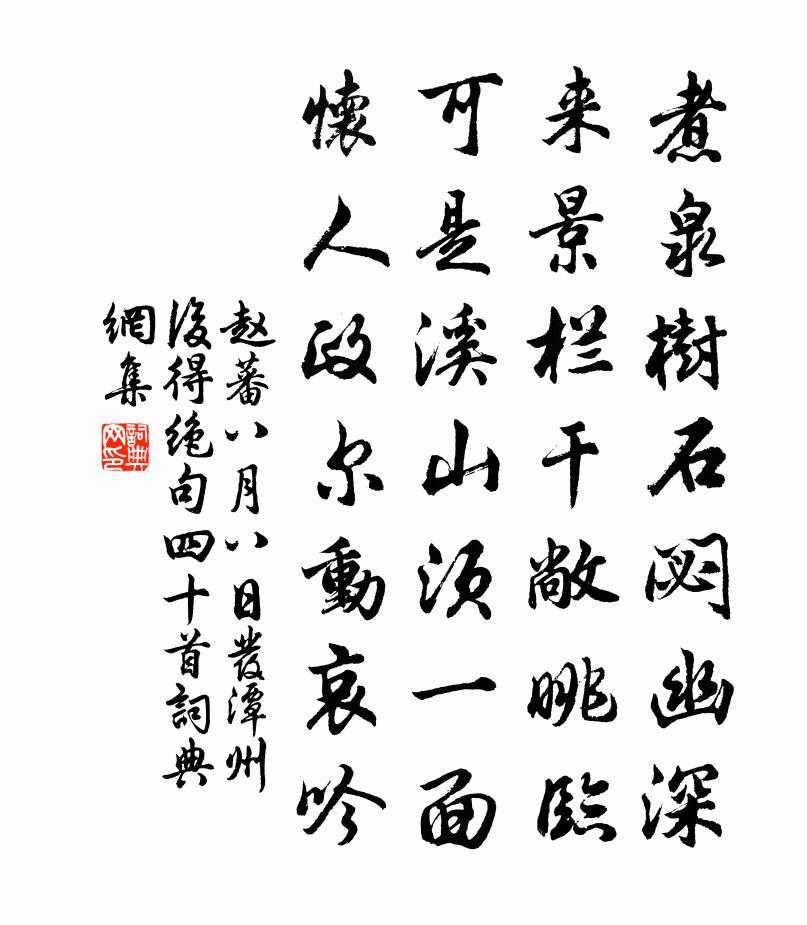 煮泉樹石閟幽深
来景栏干敞眺臨
可是溪山须一面
懷人政尔動哀吟
赵蕃八月八日發潭州
後得绝句四十首詞典
網集
詞典網印